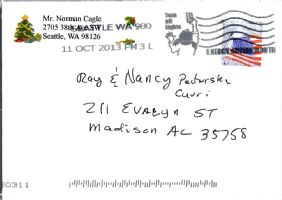 Mr. Norman Cagle
2705 38th
SEATTLE WA 980
Seattle, WA 98126
11 OCT 2013 PM 3 L
Turn off lights
Ray & Nancy
211 Evalyn ST
Madison AL 35758
20311